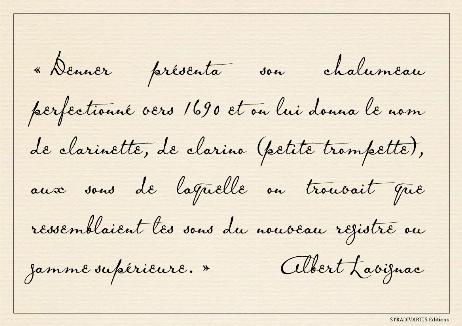 « Denner présenta son chalumeau
perfectionné vers 1690 et on lui donna le nom
de clarinette, de clarino (petite trompette),
aux sons de laquelle on trouvait que
ressemblaient les sons du nouveau registre ou
gamme supérieure. » Albert Lavignac
STRADIVARIUS Editions